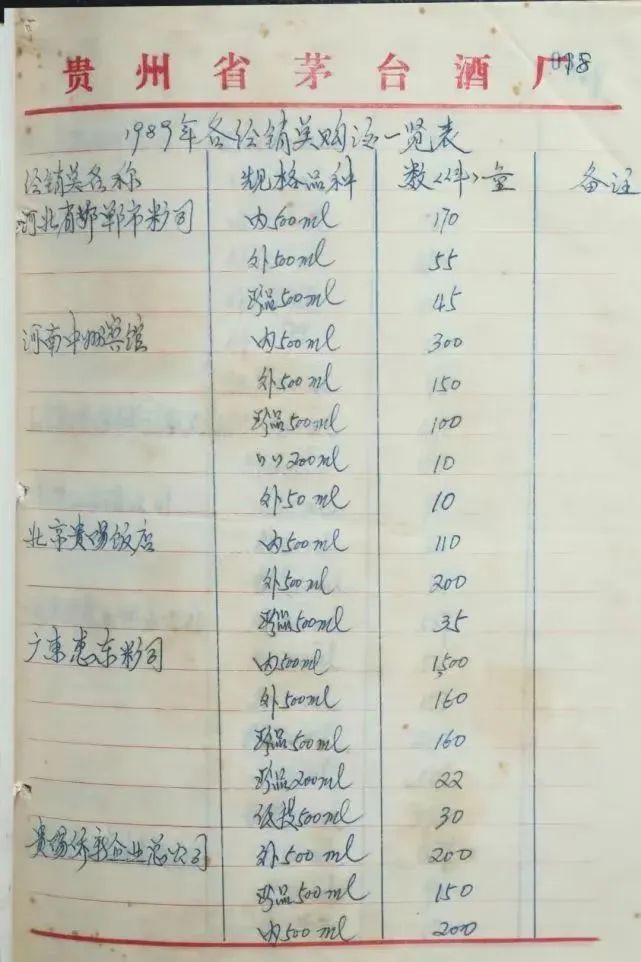 贵州省茅台酒厂
1989年各经销单购酒一览表
经销单名称 规格品种 数(件)量 备注
河北省邯郸市糖司 内500ml 170
外500ml 55
珍品500ml 45
河南中州宾馆 内500ml 300
外500ml 150
珍品500ml 100
〃〃200ml 10
外50ml 10
北京贵阳饭店 内500ml 110
外500ml 200
珍品500ml 35
广东惠东糖司 内500ml 1500
外500ml 160
珍品500ml 160
珍品200ml 22
500ml 30
贵阳侨新企业总公司 外500ml 200
珍品500ml 150
内500ml 200